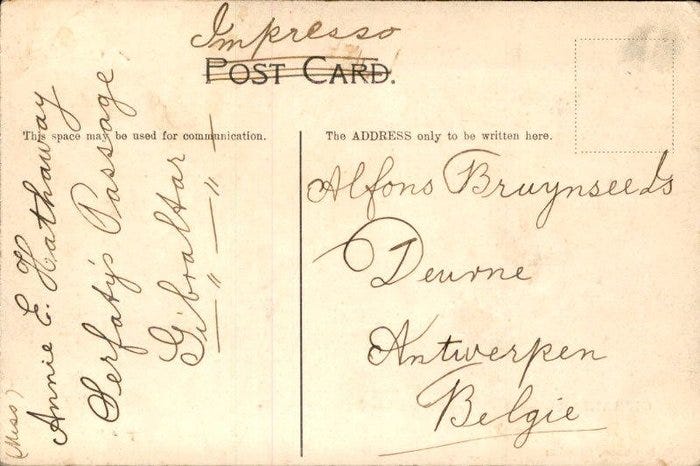 Impresso
POST CARD.
This space may be used for communication.
The ADDRESS only to be written here.
(Miss)
Annie E. Hathaway
Serfaty's Passage
Gibraltar
— " — " —
Alfons Bruynseels
Deurne
Antwerpen
Belgie